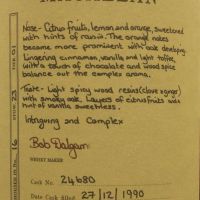 MACALLAN
Nose - Citrus fruits, lemon and orange, sweetened
with hints of raisin. The orange notes
become more prominent with oak developing.
Lingering cinnamon, vanilla and light toffee,
with a touch of chocolate and wood spice
balance out the complex aroma.
Taste - Light spicy wood resins (clove & ginger)
with smoky oak. Layers of citrus fruits with
hint of vanilla sweetness.
Intriguing and Complex
Bob Dalgarno
WHISKY MAKER
Cask No. 24680
Date Cask filled 27/12/1990